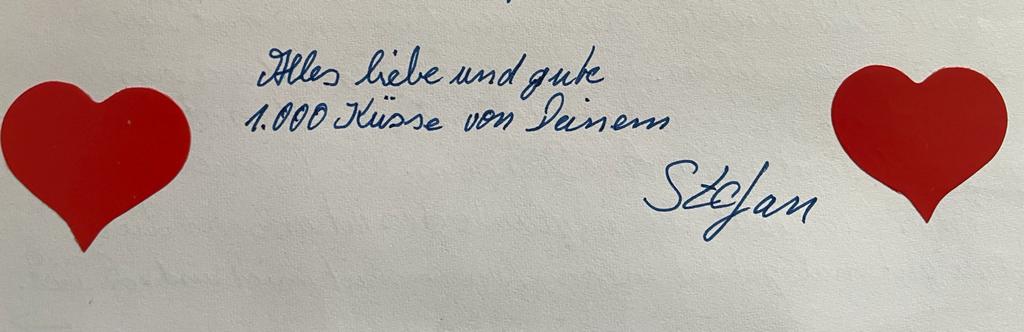 Alles liebe und gute
1.000 Küsse von Deinem
Stefan